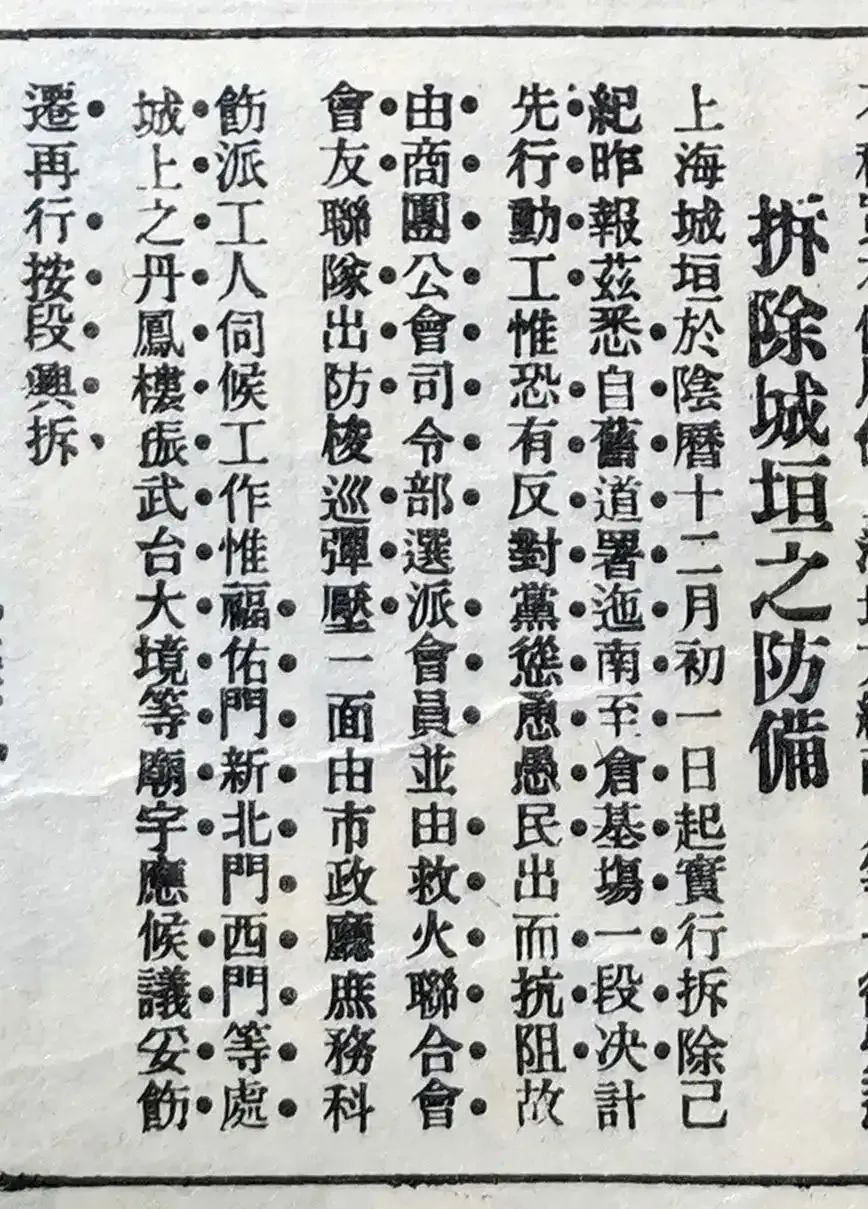 拆除城垣之防備
上海城垣於陰曆十二月初一日起實行拆除己
紀昨報茲悉自舊道署迤南至倉基塲一段决計
先行動工惟恐有反對黨慫恿愚民出而抗阻故
由商團公會司令部選派會員並由救火聯合會
會友聯隊出防梭巡彈壓一面由市政廳庶務科
飭派工人伺候工作惟福佑門新北門西門等處
城上之丹鳳樓振武台大境等廟宇應候議妥飭
遷再行按段興拆